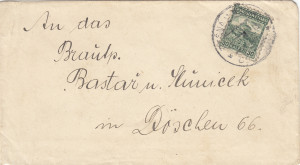 An das
Brautp.
Bastař u. Hunicek
in Döschen 66.